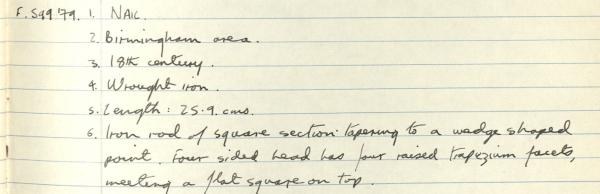 F. S99'79. 1. NAIL.
2. Birmingham area.
3. 18th century.
4. Wrought iron.
5. Length: 25.9. cms.
6. Iron rod of square section tapering to a wedge shaped
point. Four sided head has four raised trapezium facets,
meeting a flat square on top.